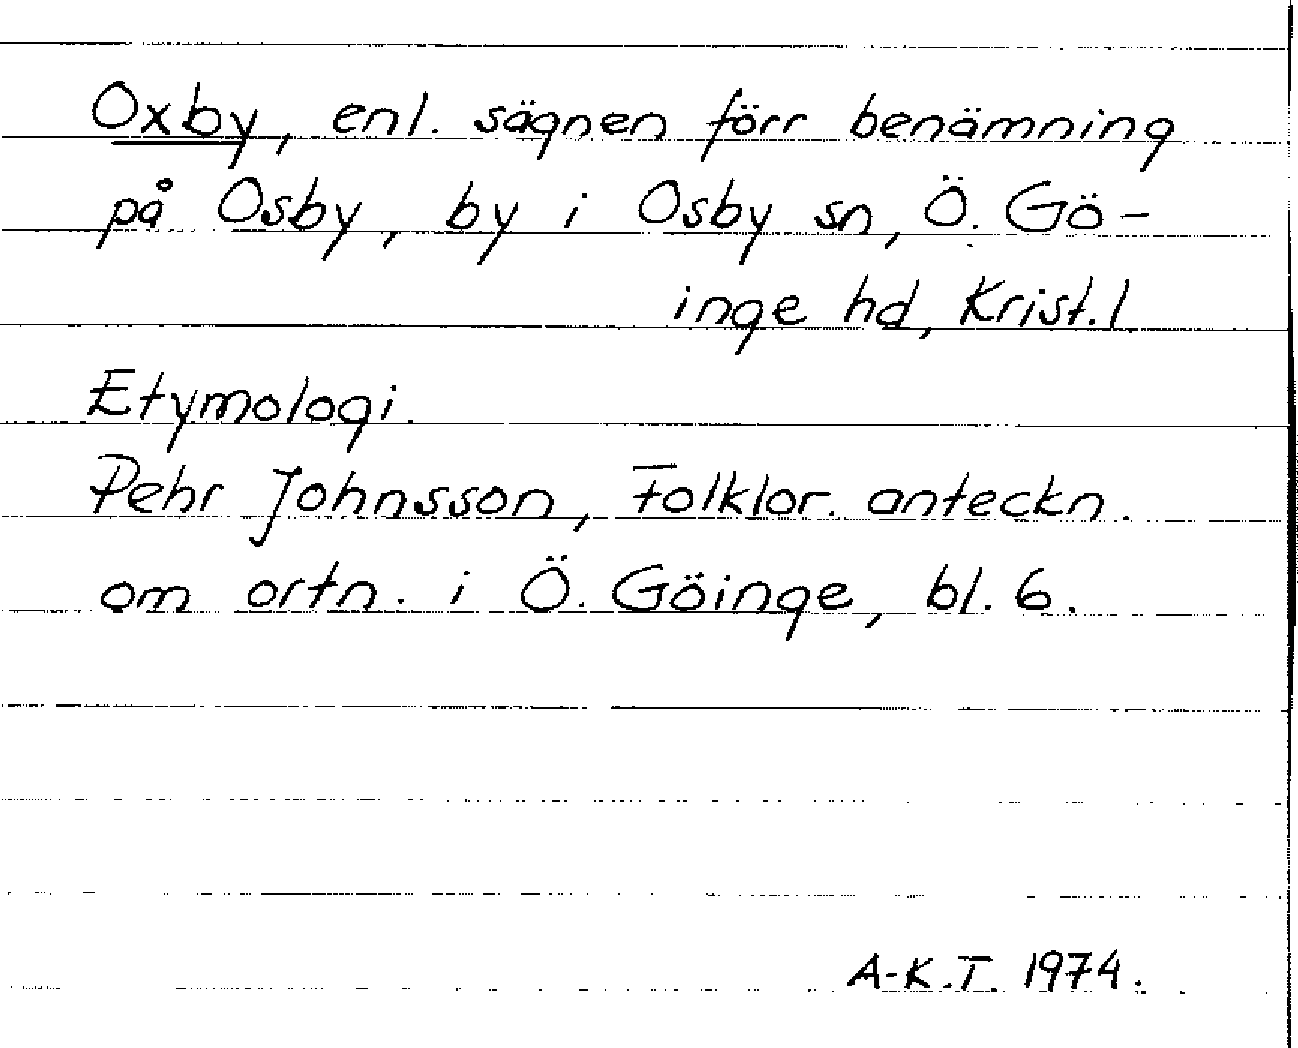 Oxby, enl. sägnen förr benämning
på Osby, by i Osby sn, Ö. Gö-
inge hd, Krist. l.
Etymologi.
Pehr Johnsson, Folklor. anteckn.
om ortn. i Ö. Göinge, bl. 6.
A-K.T. 1974.